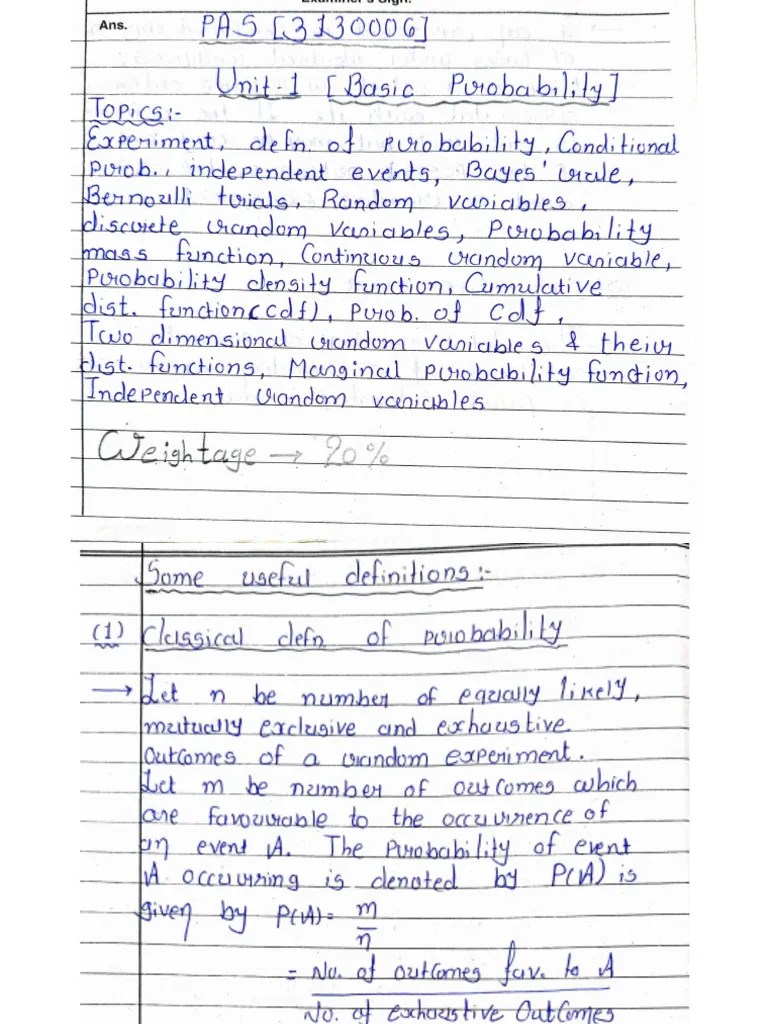 Examiner's Sign.
Ans.
PAS [3130006]
Unit-1 [Basic Probability]
Topics:-
Experiment, defn. of probability, Conditional
prob., independent events, Bayes' rule,
Bernoulli trials, Random variables,
discrete random variables, Probability
mass function, Continuous random variable,
Probability density function, Cumulative
dist. function(cdf), prob. of cdf,
Two dimensional random variables & their
dist. functions, Marginal probability function,
Independent random variables
Weightage → 20%
Some useful definitions:-
(1) Classical defn of probability
→ Let n be number of equally likely,
mutually exclusive and exhaustive
outcomes of a random experiment.
Let m be number of outcomes which
are favourable to the occurrence of
an event A. The Probability of event
A occurring is denoted by P(A) is
given by P(A) = m/n
= No. of outcomes fav. to A
No. of exhaustive outcomes